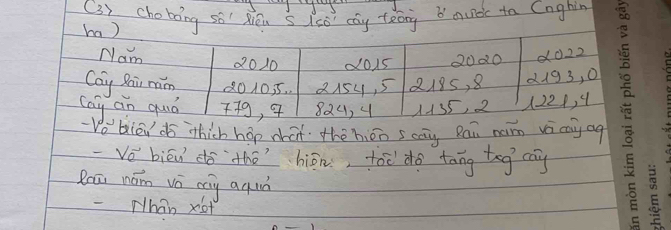 (3) cho bảng số liệu S 1 số cây trồng ở nước ta (nghìn
ha)
Năm 2010 2015 2020 2022
Cây lâu năm 2010,5 2154,5 2185,8 2193,0
Cây ăn quả 779,7 824,4 1135,2 1221,4
- Vẽ biểu đồ thích hợp nhất thể hiện S cây lâu năm và cây aq
- Vẽ biểu đồ thể hiện tốc độ tăng trg cây
lâu năm và cây a quả
- Nhận xét
ăn mòn kim loại rất phổ biến và gây
ghiệm sau: